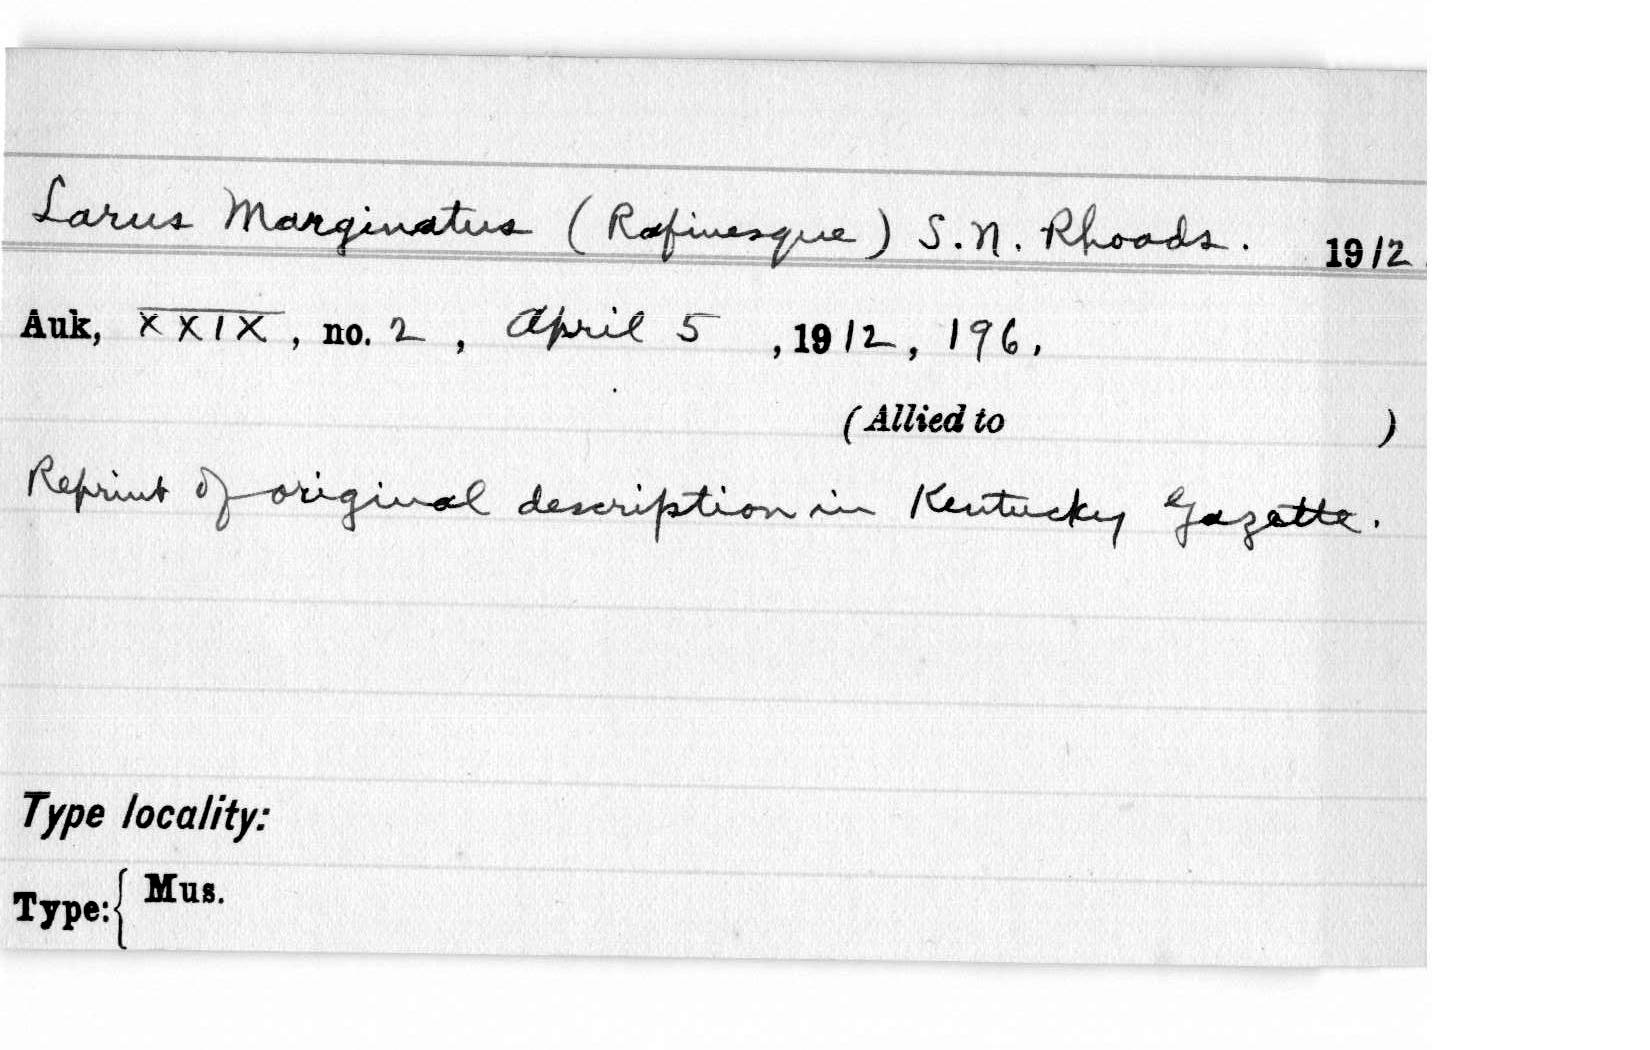 Larus Marginatus (Rafinesque) S.N. Rhoads. 1912.
Auk, XXIX, no. 2, April 5, 1912, 196.
(Allied to )
Reprint of original description in Kentucky Gazette.
Type locality:
Type: { Mus.